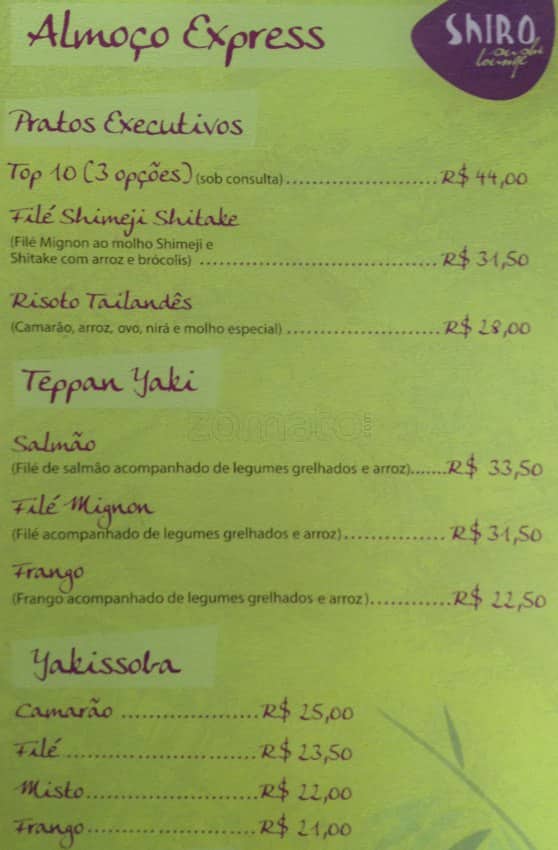 Almoço Express
SHIRO
sushi
lounge
Pratos Executivos
Top 10 (3 opções) (sob consulta)........................R$ 44,00
Filé Shimeji Shitake
(Filé Mignon ao molho Shimeji e
Shitake com arroz e brócolis) ......................................R$ 31,50
Risoto Tailandês
(Camarão, arroz, ovo, nirá e molho especial) ........................R$ 28,00
Teppan Yaki
zomato
Salmão
(Filé de salmão acompanhado de legumes grelhados e arroz).......R$ 33,50
Filé Mignon
(Filé acompanhado de legumes grelhados e arroz)................R$ 31,50
Frango
(Frango acompanhado de legumes grelhados e arroz)............R$ 22,50
Yakissoba
Camarão .....................R$ 25,00
Filé..............................R$ 23,50
Misto..........................R$ 22,00
Frango.........................R$ 21,00